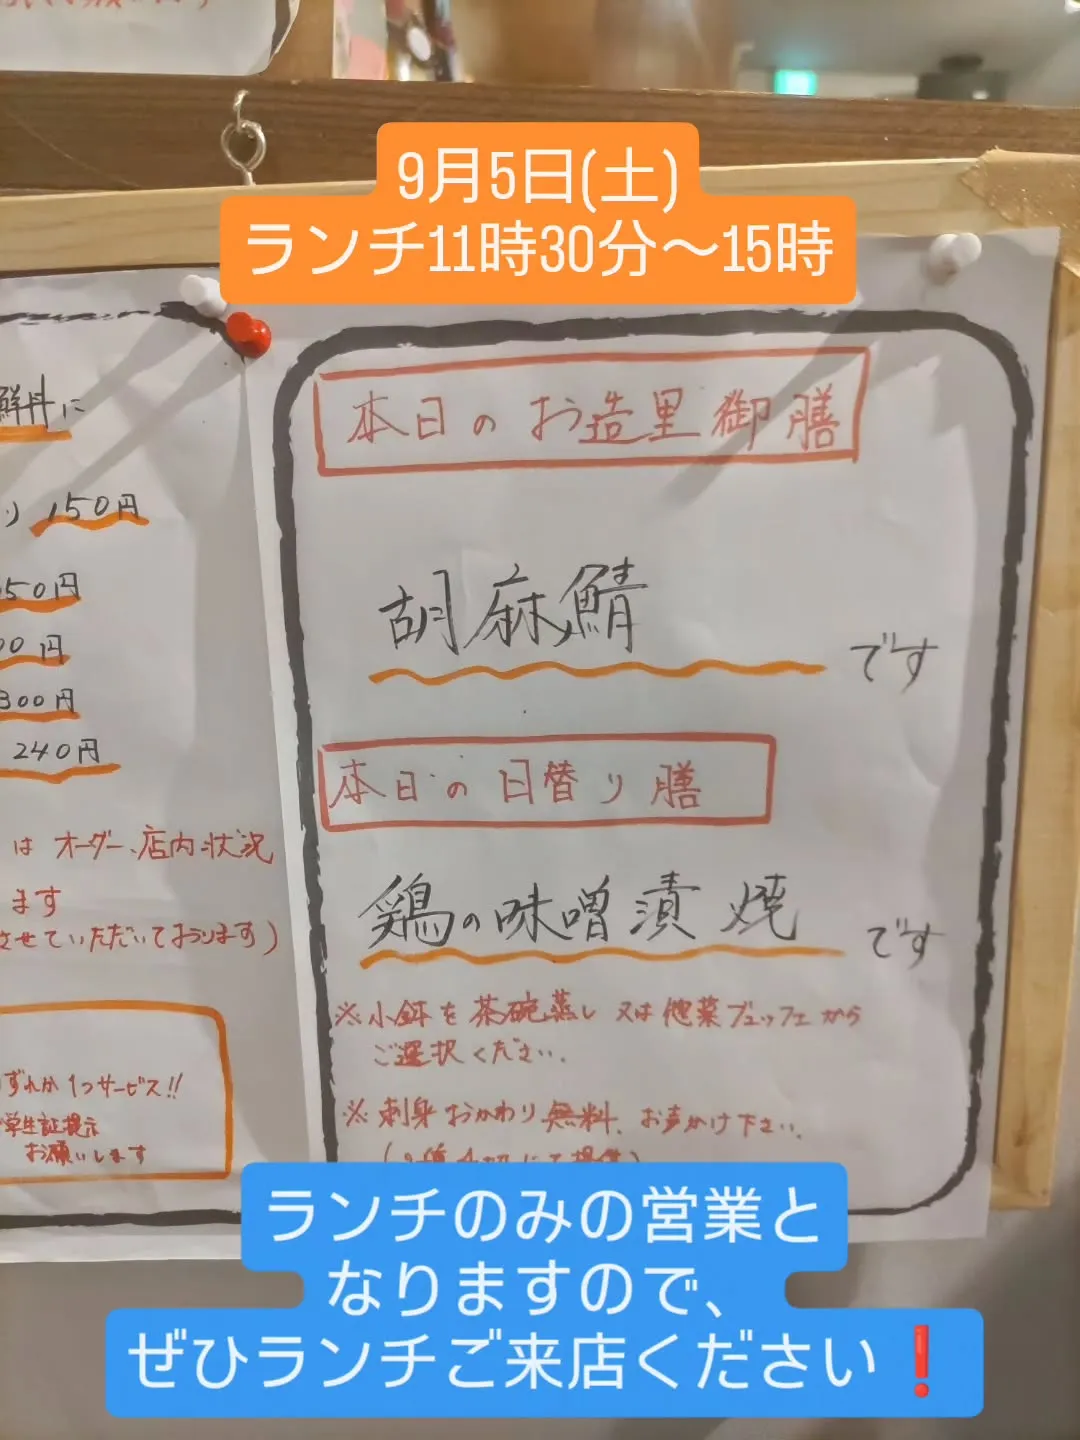 9月5日(土)
ランチ11時30分～15時
鮮丼に
150円
50円
00円
300円
240円
は オーダー、店内状況
ます
させていただいております)
ずれか1つサービス!!
学生証提示
お願いします
本日のお造里御膳
胡麻鯖 です
本日の日替り膳
鶏の味噌漬焼 です
※小鉢を茶碗蒸し又は惣菜ブュッフェから
ご選択ください。
※刺身おかわり無料、お声かけ下さい。
ランチのみの営業と
なりますので、
ぜひランチご来店ください❗